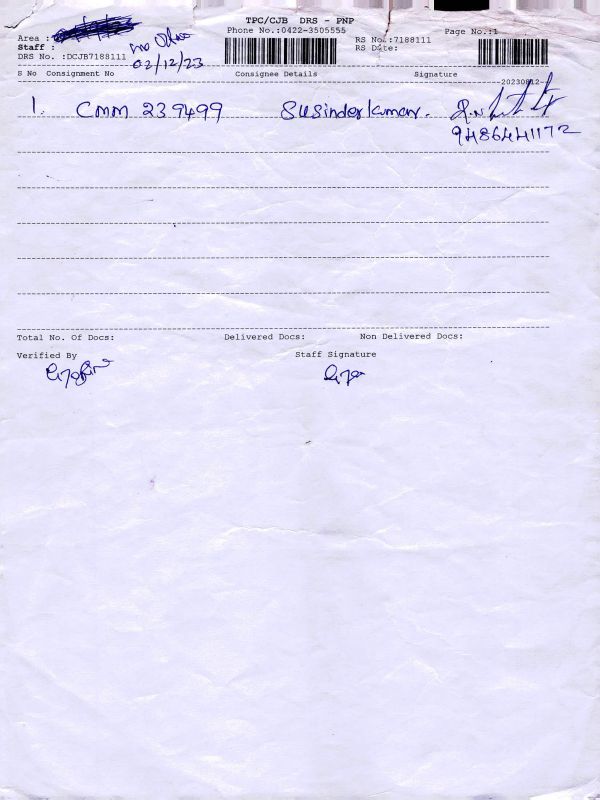 TPC/CJB DRS - PNP
Phone No.:0422-3505555
Page No.:1
Area :
RS No.:7188111
Staff :
RS Date:
DRS No. :DCJB7188111
02/12/23
S No Consignment No Consignee Details Signature
1. Cmm 239499 Susinderkumar.
9486441172
Total No. Of Docs: Delivered Docs: Non Delivered Docs:
Verified By Staff Signature